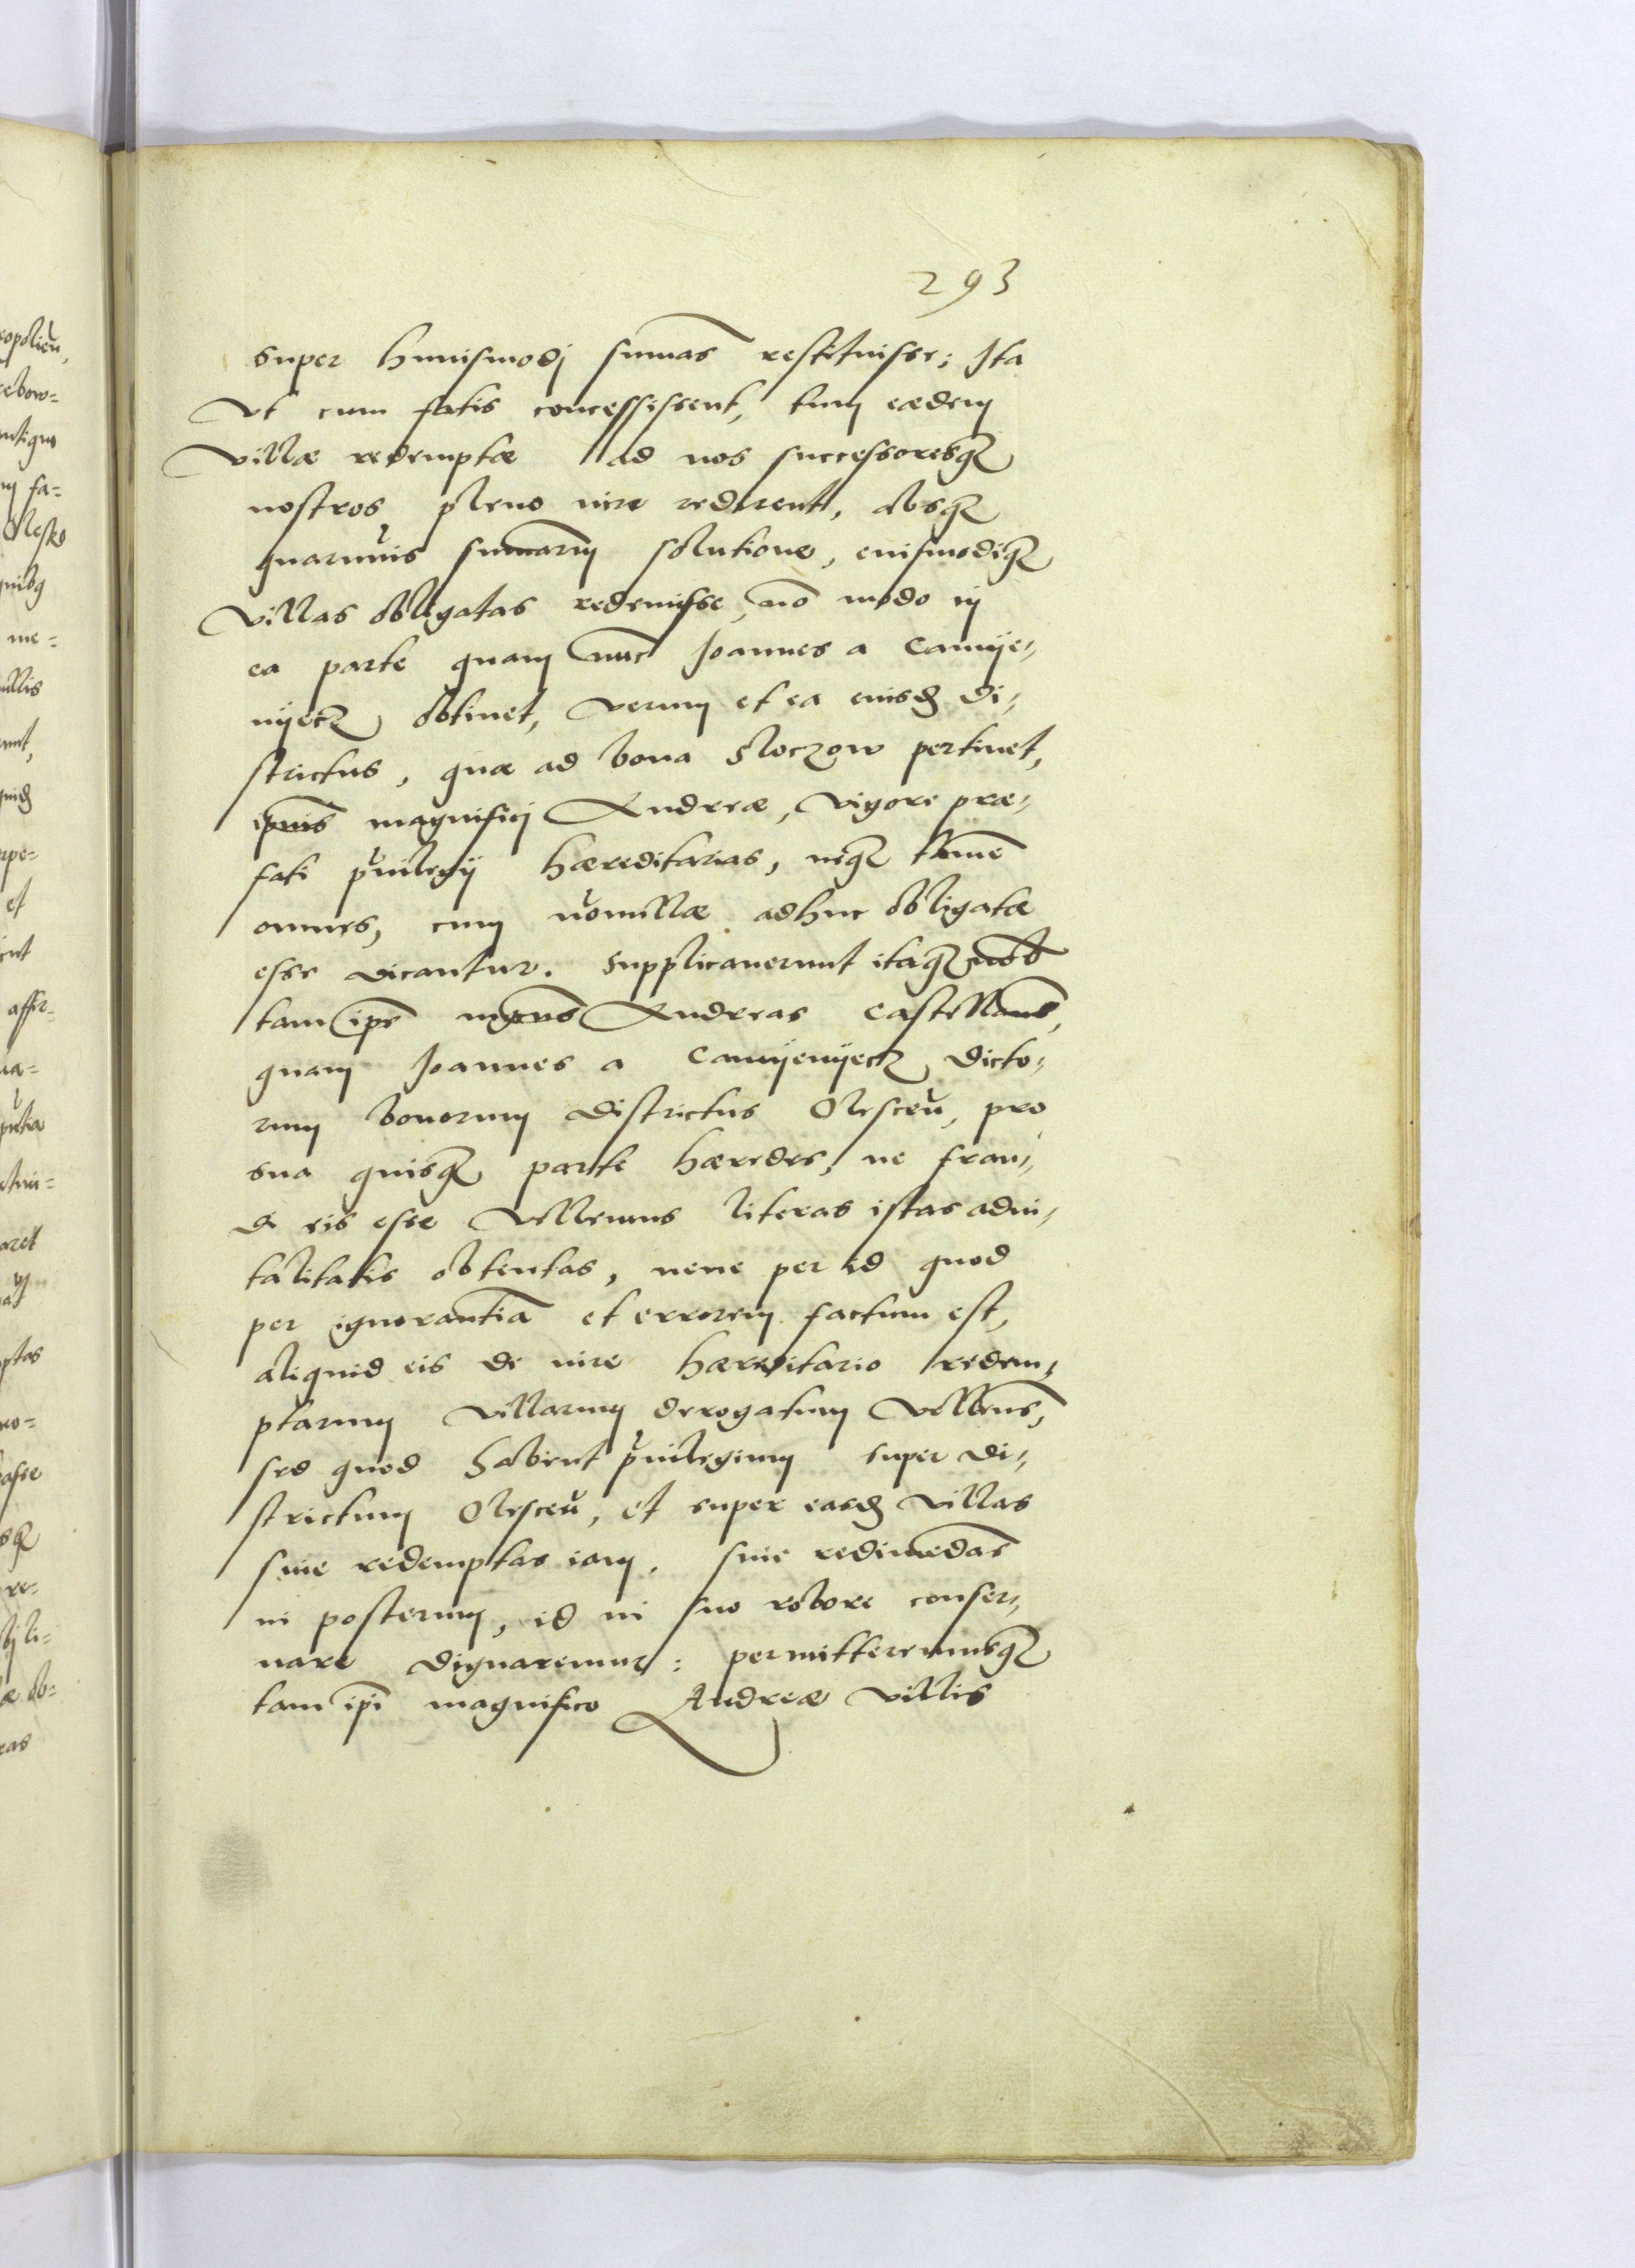 293
super huiusmodj sumas restituisse; Ita
Vt cum fatis concessissent, tum eædem
Villæ redemptæ ad nos successoresq3
nostros pleno iure redirent, absq3
quarumuis sumarum solutione, euismodiq3
Villas obligatas redemisse, nō modo in
ea parte quam nūc Joannes a Camÿe-
nÿecz obtinet, Verum et ea eiusd Di-
strictus, quæ ad bona Sloczow pertinet,
ipsius magnifici Andreæ, Vigore præ-
fati priuilegij hæreditarias, neq3 tamē
omnes, cum nonnullæ adhuc obligatæ
esse dicantur. Supplicauerunt itaq3 nob
tam ipse mgcus Andreas Castellanus,
quam Joannes a Camÿenÿecz dicto-
rum bonorum districtus Olesceñ, pro
sua quisq3 parte hæredes, ne frau-
di eis esse Vellemus literas istas adui-
talitatis obtentas, neue per id quod
per ignorantiā et errorem factum est,
aliquid eis de iure hæreditario redem-
ptarum Villarum derogatum Vellemus,
sed quod habent priuilegium super di-
strictum Olesceñ, et super easd Villas
siue redemptas iam, siue redimēdas
in posterum, id in suo robore conser-
uare dignaremur: permitteremusq3
tam ipsi magnifico Andreæ Villis